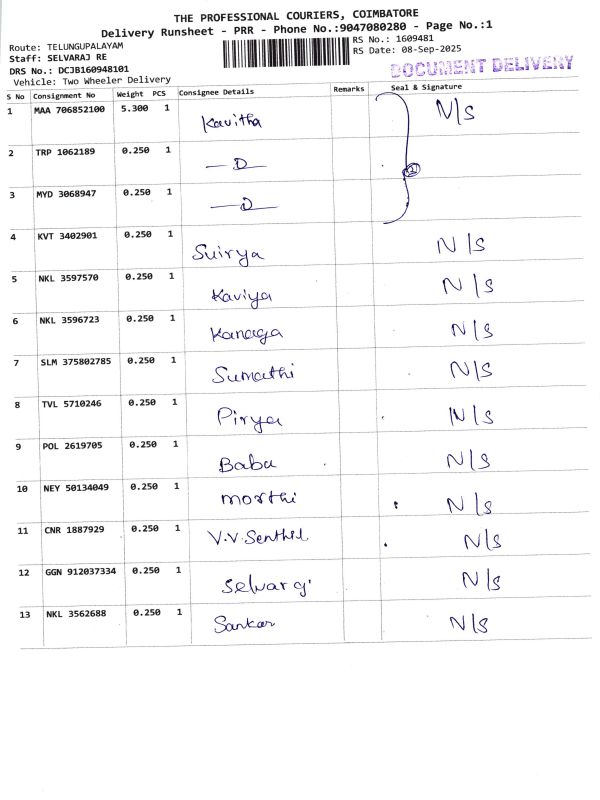 THE PROFESSIONAL COURIERS, COIMBATORE
Delivery Runsheet - PRR - Phone No.:9047080280 - Page No.:1
Route: TELUNGUPALAYAM
Staff: SELVARAJ RE
DRS No.: DCJB160948101
Vehicle: Two Wheeler Delivery
RS No.: 1609481
RS Date: 08-Sep-2025
DOCUMENT DELIVERY
S No Consignment No Weight PCS Consignee Details Remarks Seal & Signature
1 MAA 706852100 5.300 1 Kavitha N/S
2 TRP 1062189 0.250 1 —D—
3 MYD 3068947 0.250 1 —D—
4 KVT 3402901 0.250 1 Suirya N/S
5 NKL 3597570 0.250 1 Kaviya N/S
6 NKL 3596723 0.250 1 Kanaga N/S
7 SLM 375802785 0.250 1 Sumathi N/S
8 TVL 5710246 0.250 1 Pirya N/S
9 POL 2619705 0.250 1 Babu N/S
10 NEY 50134049 0.250 1 morthi N/S
11 CNR 1887929 0.250 1 V.V.Senthil N/S
12 GGN 912037334 0.250 1 N/S
13 NKL 3562688 0.250 1 Sankar N/S